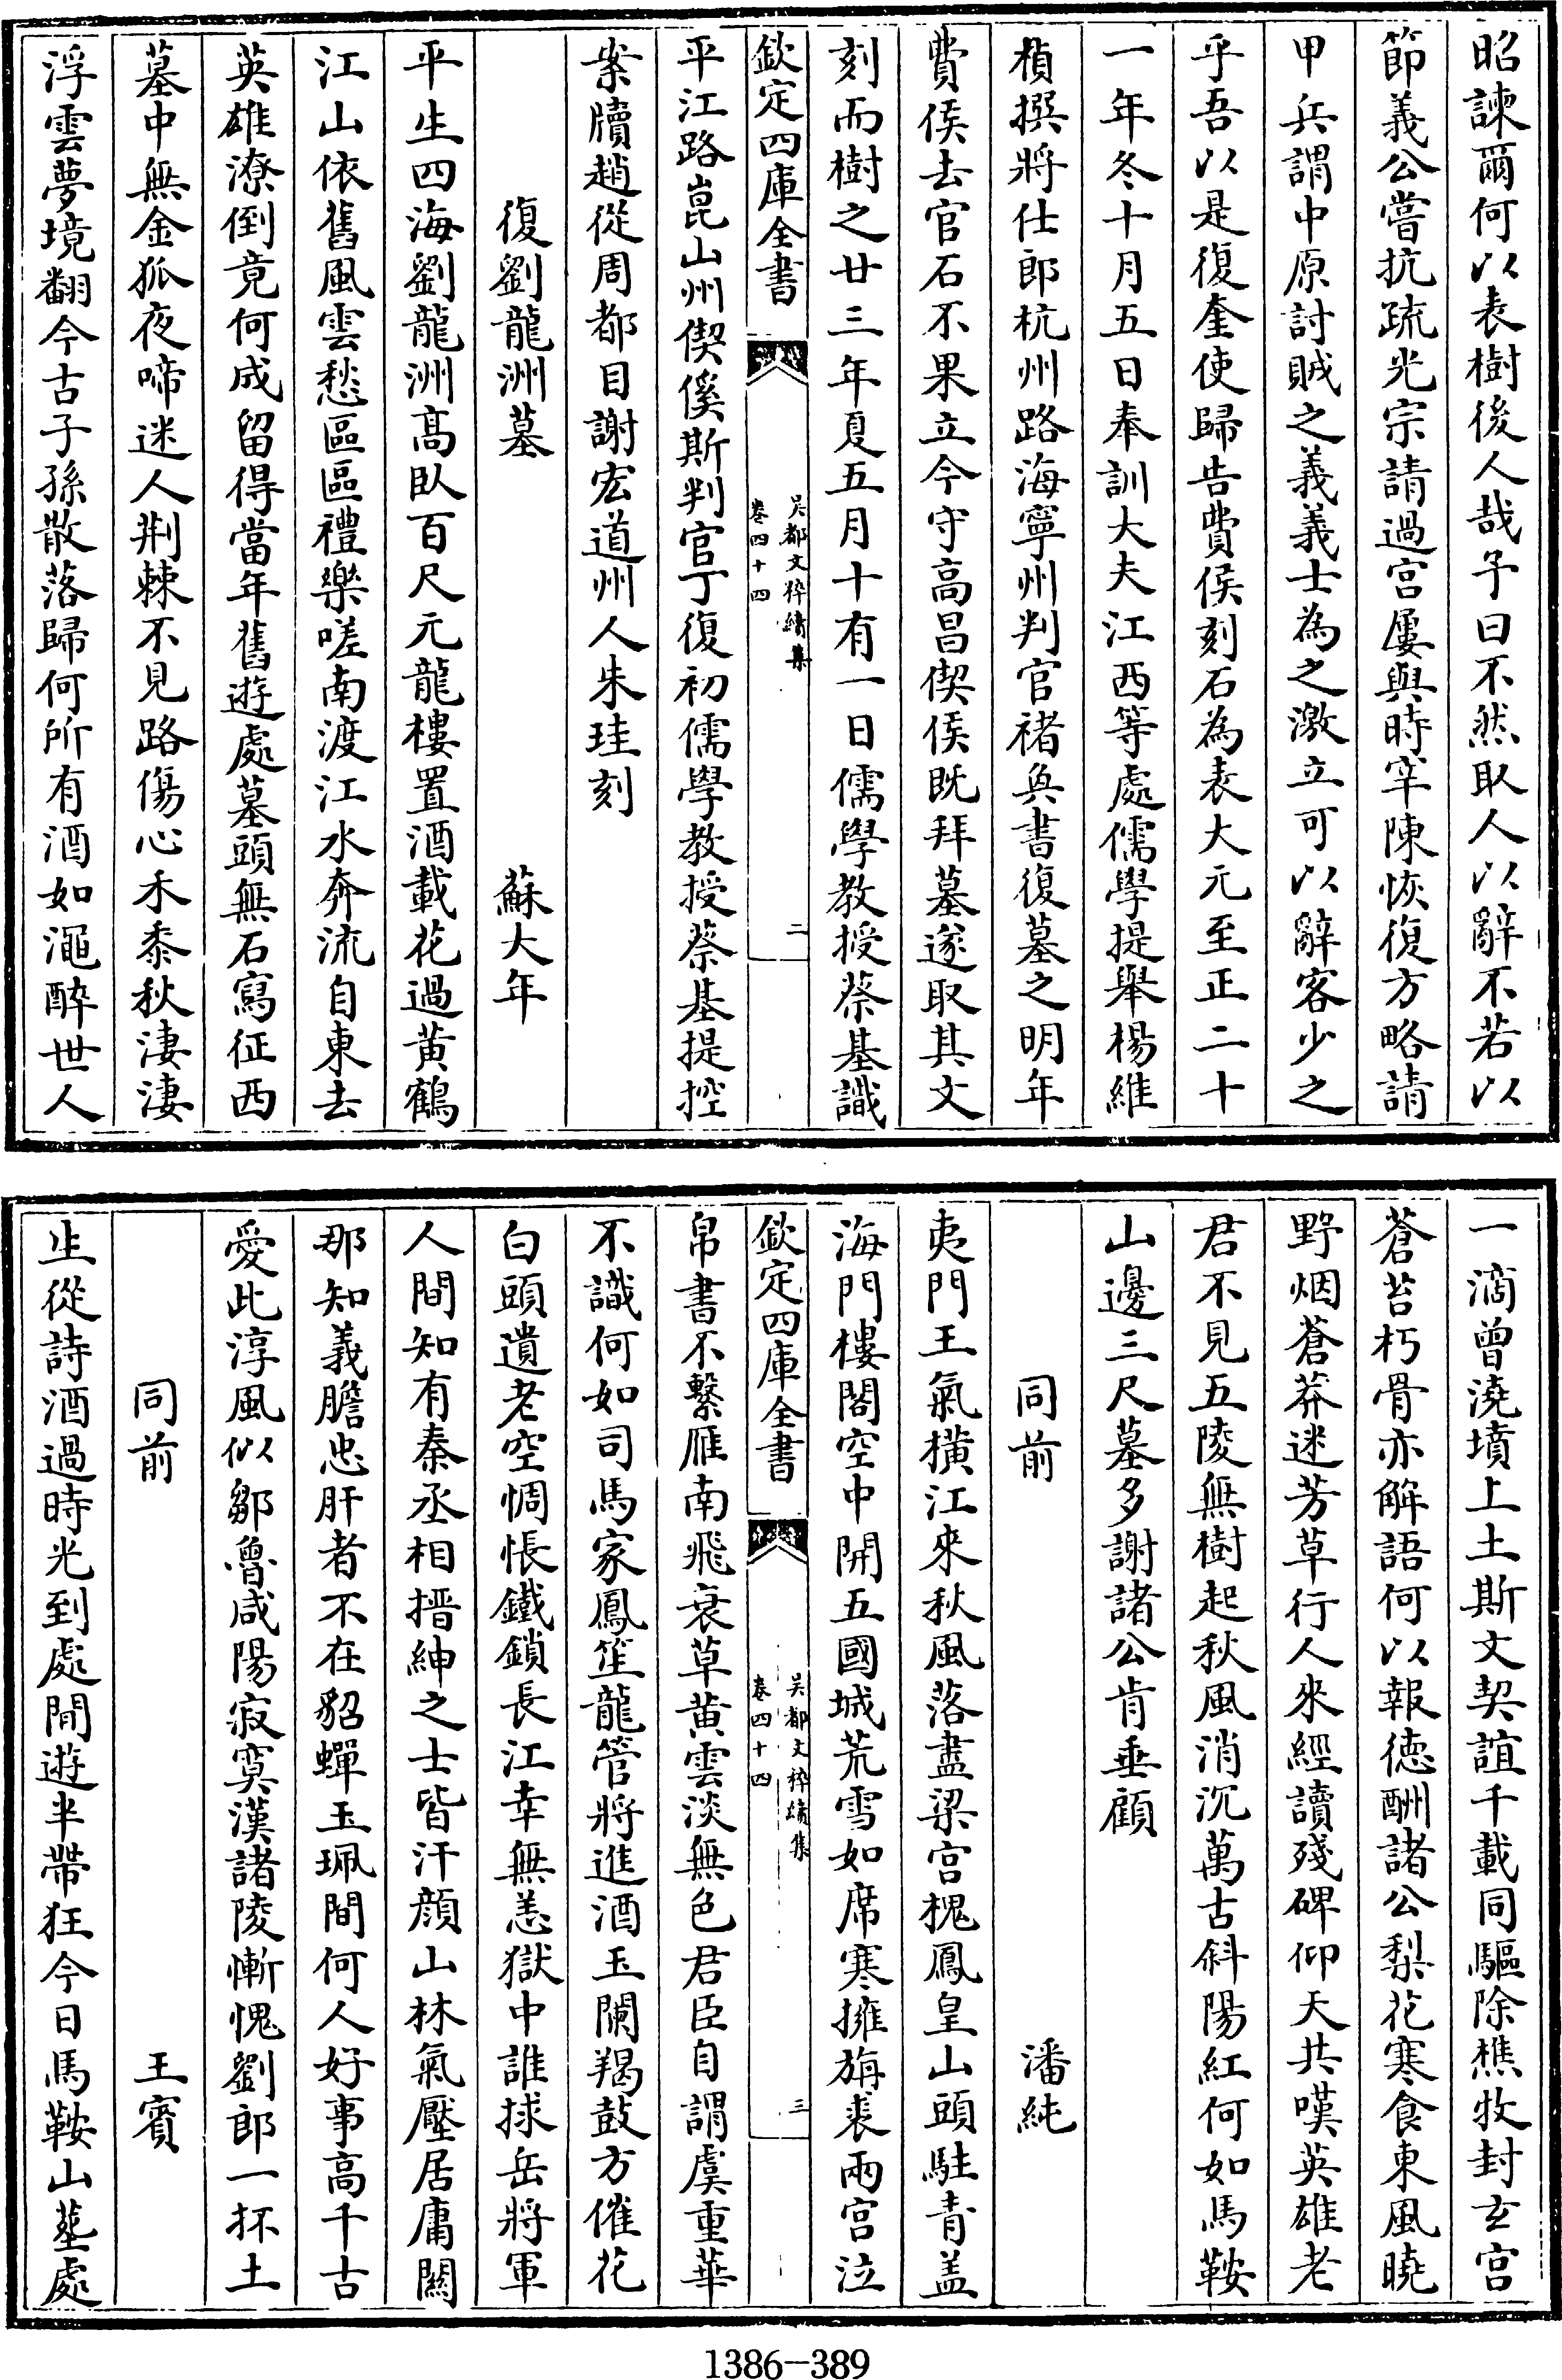 昭諫爾何以表樹後人哉予曰不然取人以辭不若以
節義公嘗抗疏光宗請過宫屢與時宰陳恢復方略請
甲兵謂中原討賊之義義士為之激立可以辭客少之
乎吾以是復奎使歸告費侯刻石為表大元至正二十
一年冬十月五日奉訓大夫江西等處儒學提舉楊維
楨撰將仕郎杭州路海寧州判官褚奐書復墓之明年
費侯去官石不果立今守高昌偰侯既拜墓遂取其文
刻而樹之廿三年夏五月十有一日儒學教授蔡基識
欽定四庫全書
吳都文粹續集
卷四十四
二
平江路崑山州偰傒斯判官丁復初儒學教授蔡基提控
案牘趙從周都目謝宏道州人朱珪刻
復劉龍洲墓
蘇大年
平生四海劉龍洲高臥百尺元龍樓置酒載花過黄鶴
江山依舊風雲愁區區禮樂嗟南渡江水奔流自東去
英雄潦倒竟何成留得當年舊遊處墓頭無石寫征西
墓中無金狐夜啼迷人荆棘不見路傷心禾黍秋淒淒
浮雲夢境翻今古子孫散落歸何所有酒如澠醉世人
一滴曾澆墳上土斯文契誼千載同驅除樵牧封玄宫
蒼苔朽骨亦解語何以報德酬諸公梨花寒食東風曉
野烟蒼莽迷芳草行人來經讀殘碑仰天共嘆英雄老
君不見五陵無樹起秋風消沉萬古斜陽紅何如馬鞍
山邊三尺墓多謝諸公肯垂顧
同前
潘純
夷門王氣橫江來秋風落盡梁宫槐鳳皇山頭駐青盖
海門樓閣空中開五國城荒雪如席寒擁旃裘兩宫泣
欽定四庫全書
吳都文粹續集
卷四十四
三
帛書不繫雁南飛衰草黄雲淡無色君臣自謂虞重華
不識何如司馬家鳳笙龍管將進酒玉闌羯鼓方催花
白頭遺老空惆悵鐵鎖長江幸無恙獄中誰捄岳將軍
人間知有秦丞相搢紳之士皆汗顔山林氣壓居庸關
那知義膽忠肝者不在貂蟬玉珮間何人好事高千古
愛此淳風似鄒魯咸陽寂寞漢諸陵慚愧劉郎一抔土
同前
王賓
生從詩酒過時光到處閒遊半帶狂今日馬鞍山塟處
1386-389